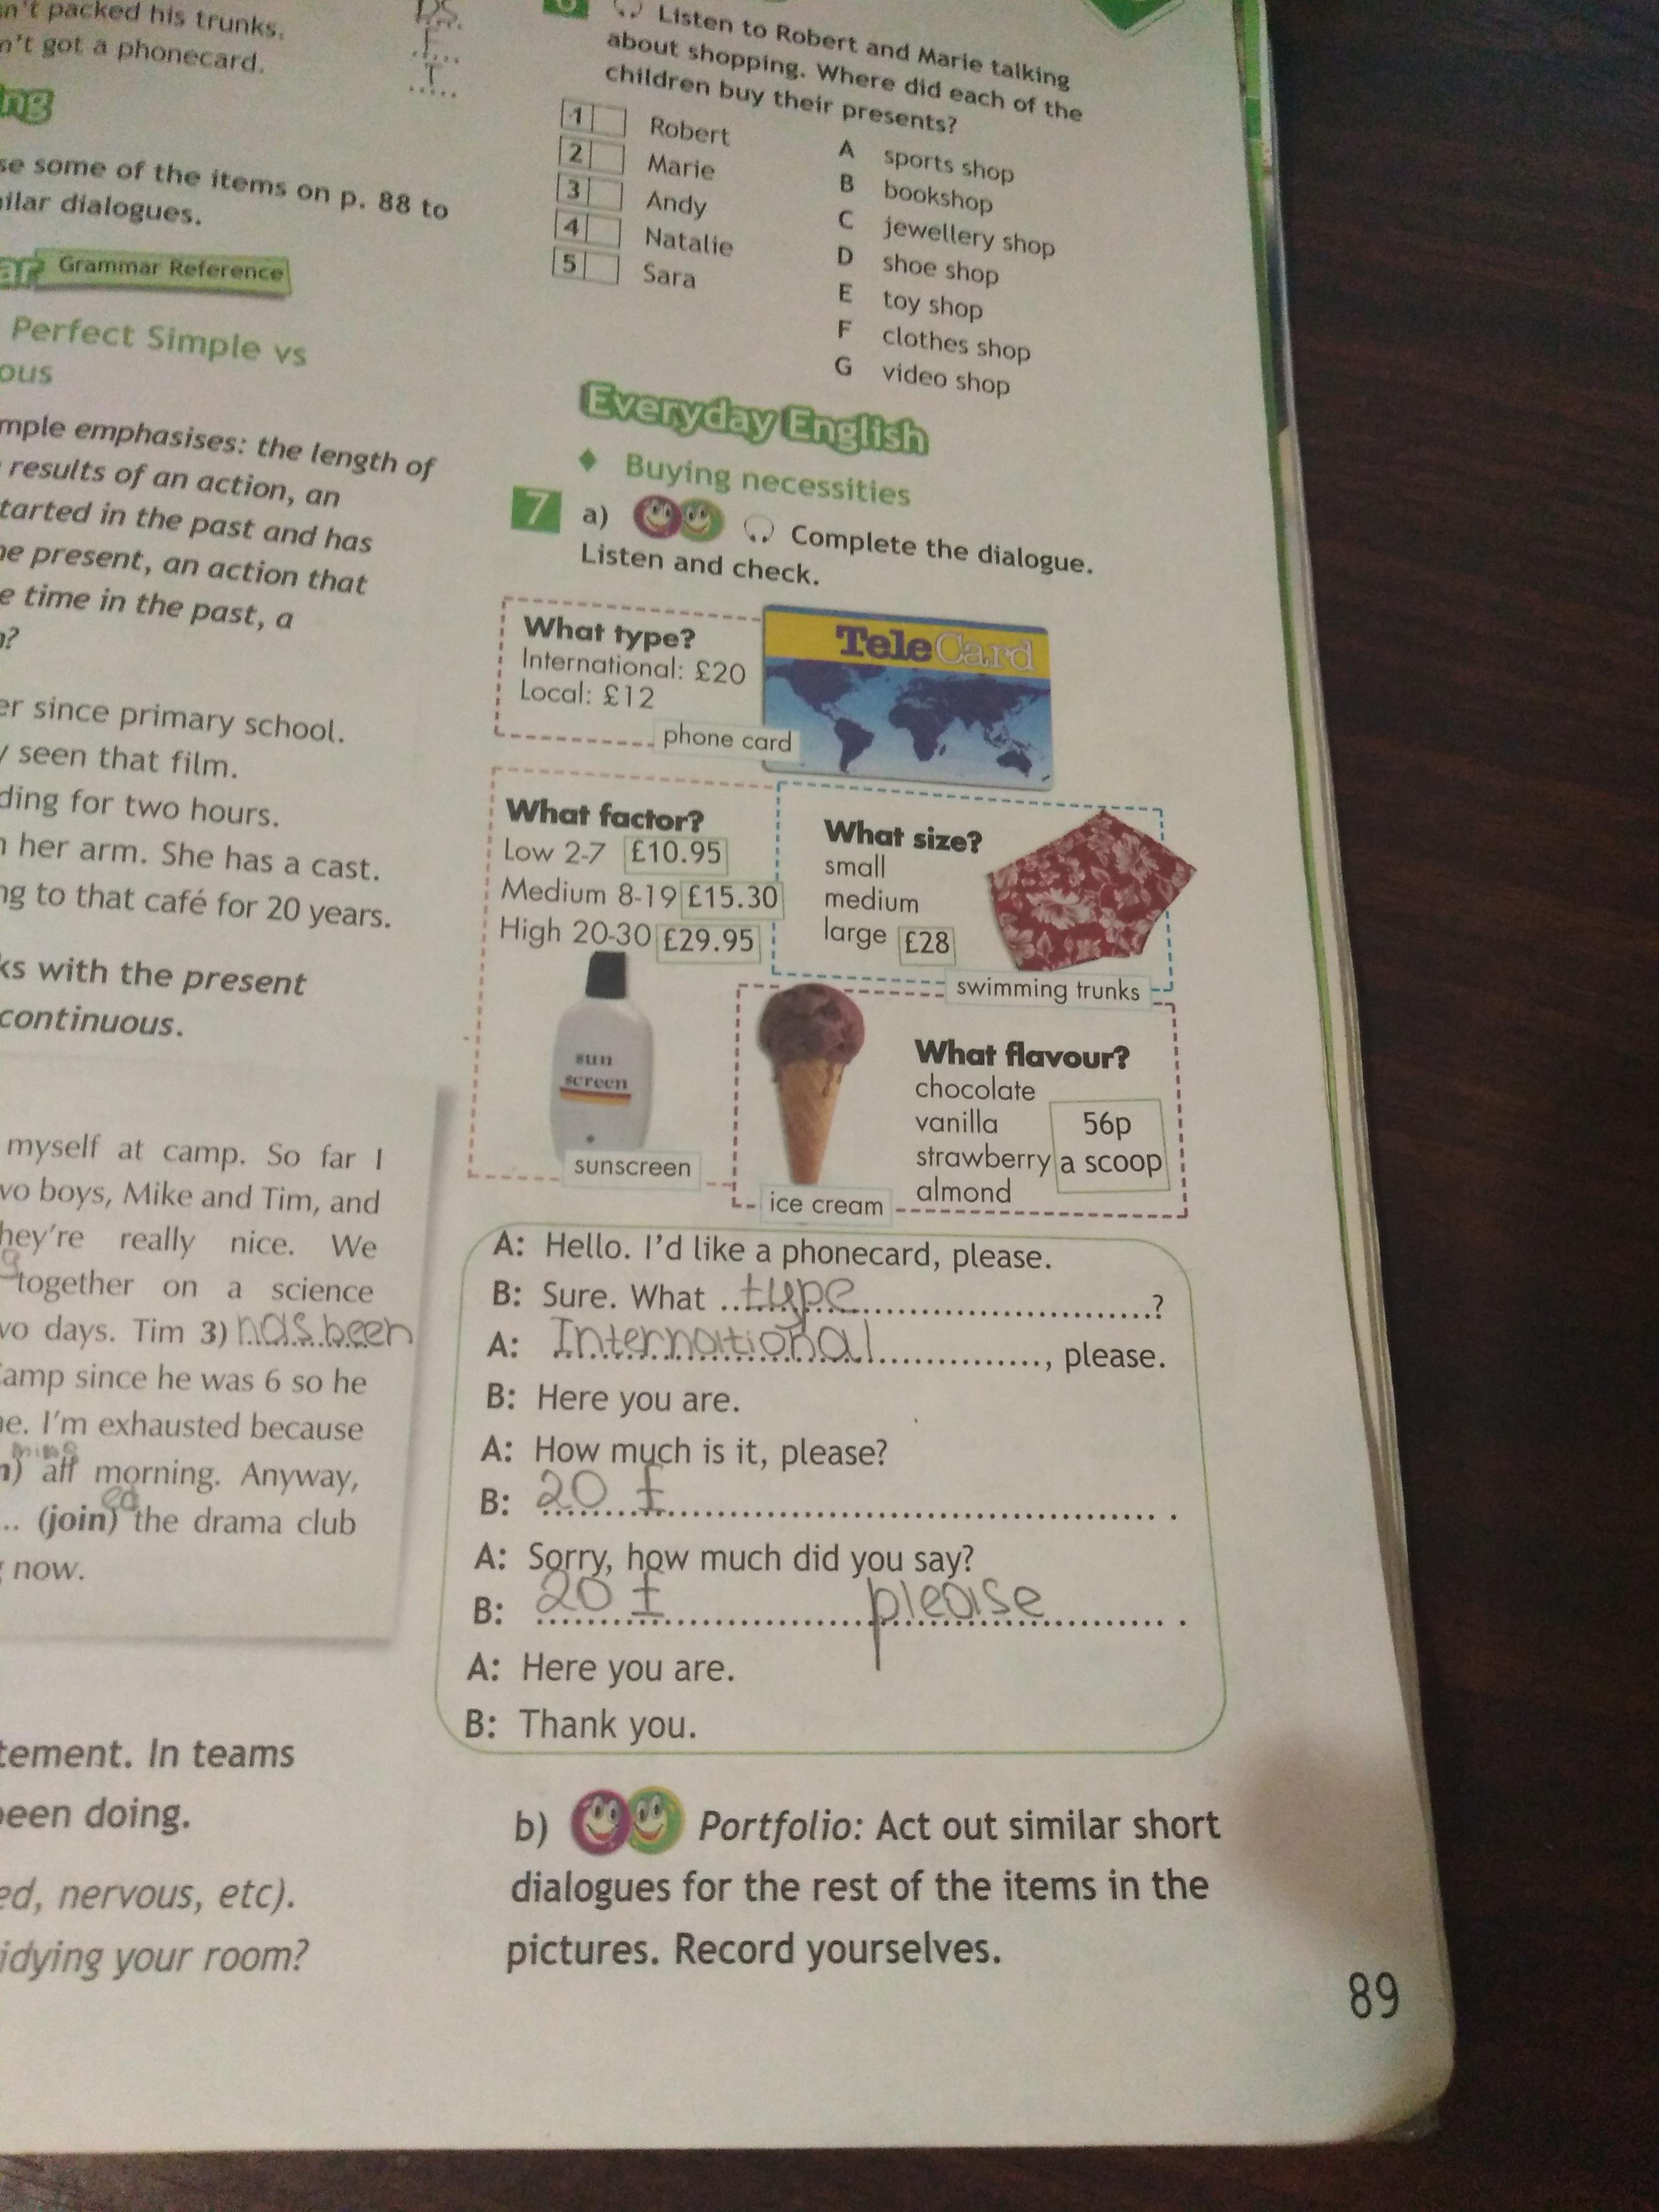 n't packed his trunks.
DS
n't got a phonecard.
F
T
ng
se some of the items on p. 88 to
ilar dialogues.
ar Grammar Reference
Perfect Simple vs
ous
mple emphasises: the length of
results of an action, an
tarted in the past and has
e present, an action that
e time in the past, a
?
er since primary school.
y seen that film.
ding for two hours.
her arm. She has a cast.
ng to that café for 20 years.
ks with the present
continuous.
myself at camp. So far I
wo boys, Mike and Tim, and
hey're really nice. We
together on a science
wo days. Tim 3) has been
Camp since he was 6 so he
e. I'm exhausted because
ming
) all morning. Anyway,
ed
.. (join) the drama club
now.
tement. In teams
been doing.
ed, nervous, etc).
idying your room?
6 Listen to Robert and Marie talking
about shopping. Where did each of the
children buy their presents?
1 Robert
2 Marie
3 Andy
4 Natalie
5 Sara
A sports shop
B bookshop
C jewellery shop
D shoe shop
E toy shop
F clothes shop
G video shop
Everyday English
♦ Buying necessities
7 a) Complete the dialogue.
Listen and check.
What type?
International: £20
Local: £12
phone card
TeleCard
What factor?
Low 2-7 £10.95
Medium 8-19 £15.30
High 20-30 £29.95
sun
screen
sunscreen
What size?
small
medium
large £28
swimming trunks
What flavour?
chocolate
vanilla
strawberry
almond
56p
a scoop
ice cream
A: Hello. I'd like a phonecard, please.
B: Sure. What type ?
A: International , please.
B: Here you are.
A: How much is it, please?
B: 20 £ .
A: Sorry, how much did you say?
B: 20 £ please .
A: Here you are.
B: Thank you.
b) Portfolio: Act out similar short
dialogues for the rest of the items in the
pictures. Record yourselves.
89